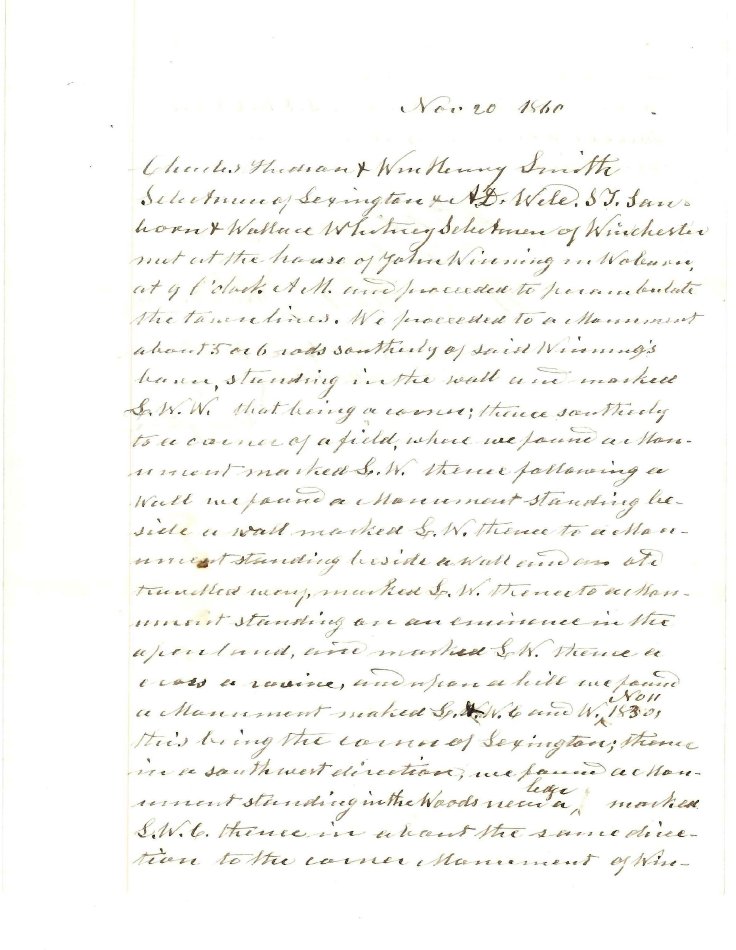 Nov 20 1860
Charles Hudson & Wm Henry Smith
Selectmen of Lexington & A.D. Weld. S.T. San-
born & Wallace Whitney Selectmen of Winchester
met at the house of John Winning in Woburn,
at 9 O'clock A.M. and proceeded to perambulate
the town lines. We proceeded to a Monument
about 5 or 6 rods southerly of said Winning's
barn, standing in the wall and marked
L.W.W. that being a corner; thence southerly
to a corner of a field, where we found a Mon-
ument marked L.W. thence following a
wall we found a Monument standing be-
side a wall marked L.W. thence to a Mon-
ument standing beside a wall and an old
travelled way, marked L.W. thence to a Mon-
ument standing on an eminence in the
open land, and marked L W. thence a
cross a ravine, and upon a hill we found
a Monument maked L. W. C and W. Nov 1830,
this being the corner of Lexington; thence
in a southwest direction, we found a Mon-
ument standing in the Woods near a ledge, marked
L.W.C. thence in about the same direc-
tion to the corner Monument of Win-